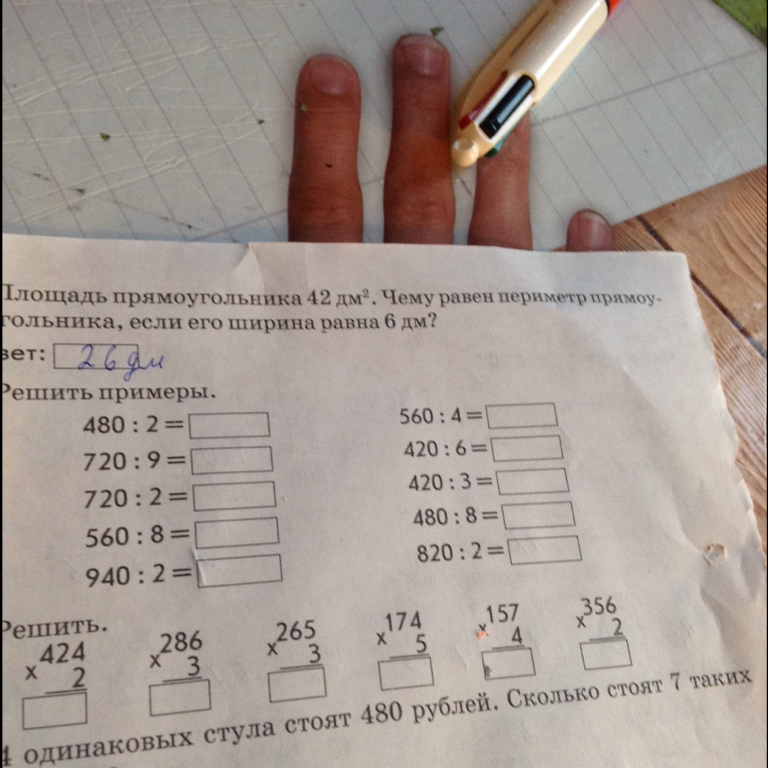 Площадь прямоугольника 42 дм². Чему равен периметр прямоу-
гольника, если его ширина равна 6 дм?
вет: 26 дм
Решить примеры.
480 : 2 =
720 : 9 =
720 : 2 =
560 : 8 =
940 : 2 =
560 : 4 =
420 : 6 =
420 : 3 =
480 : 8 =
820 : 2 =
Решить.
x 424
2
x 286
3
x 265
3
x 174
5
x 157
4
x 356
2
4 одинаковых стула стоят 480 рублей. Сколько стоят 7 таких